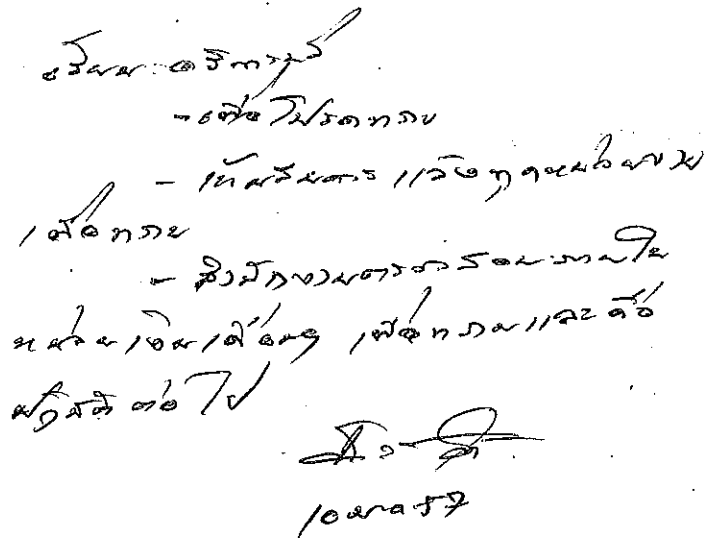 เรียน อธิการบดี
- เพื่อโปรดทราบ
- เห็นสมควร แจ้งทุกหน่วยงาน
เพื่อทราบ
- สำนักงานตรวจสอบภายใน
หน่วยเงินเดือนฯ เพื่อทราบและถือ
ปฏิบัติ ต่อไป
10 มค 57